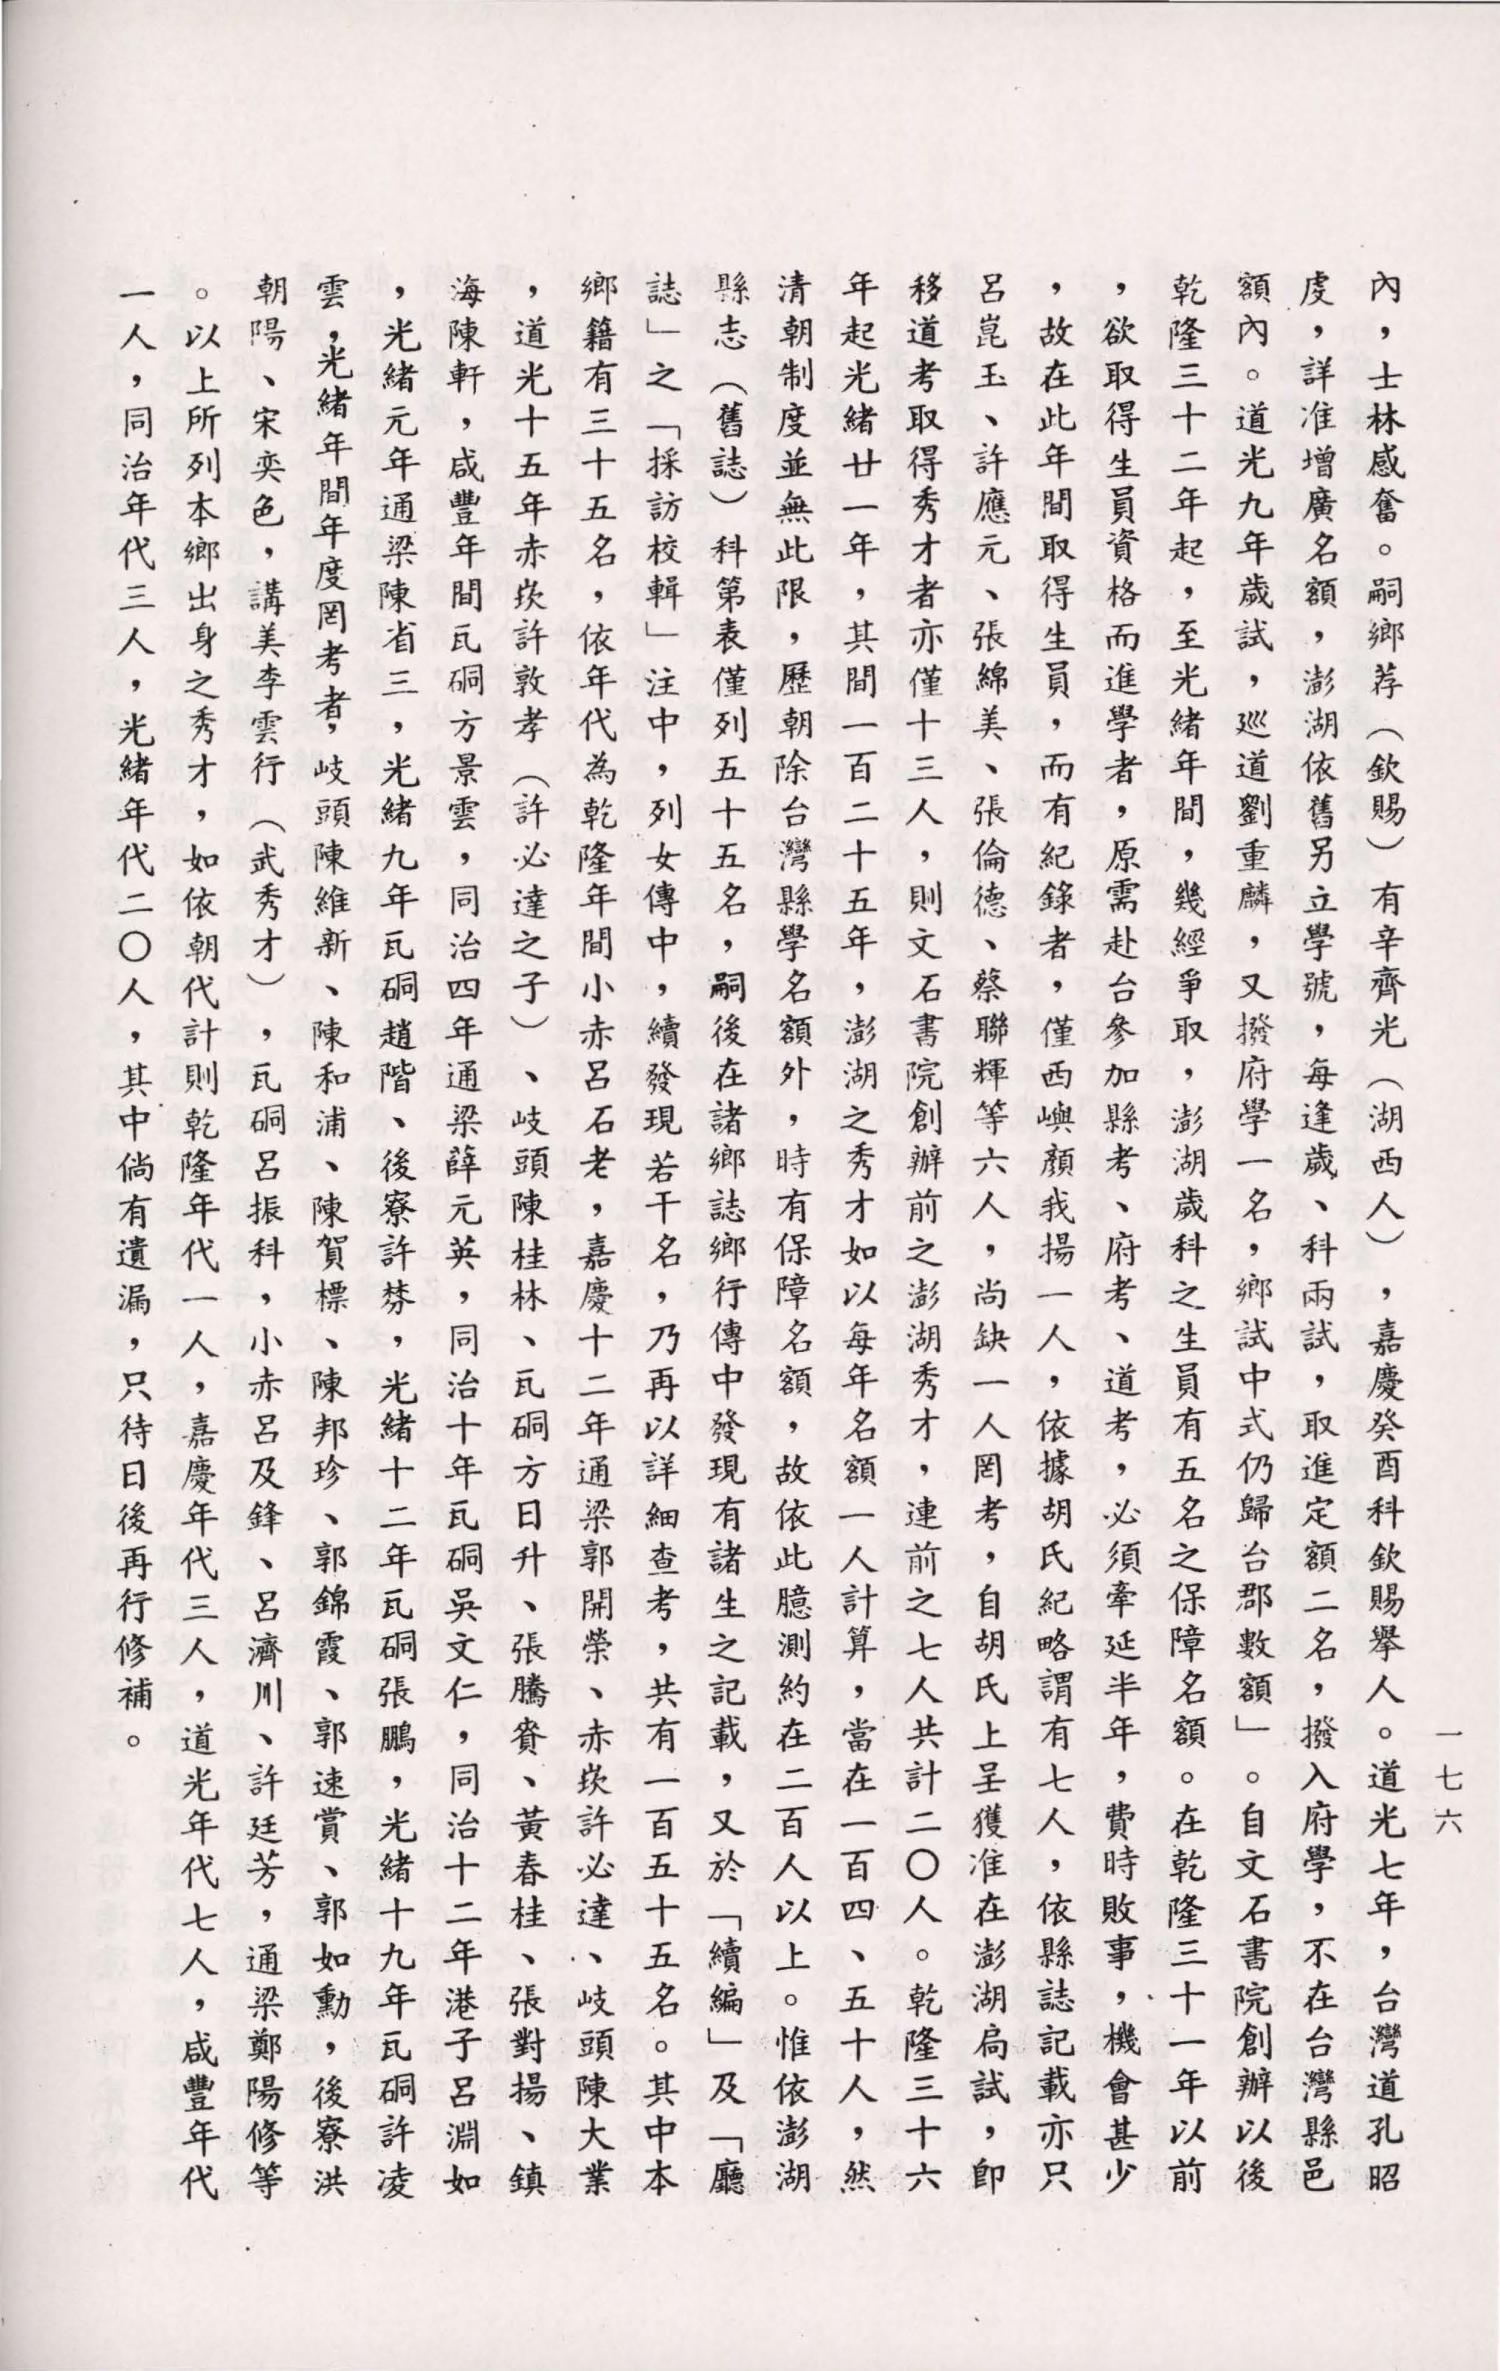 內，士林感奮。嗣鄉荐（欽賜）有辛齊光（湖西人），嘉慶癸酉科欽賜舉人。道光七年，台灣道孔昭
虔，詳准增廣名額，澎湖依舊另立學號，每逢歲、科兩試，取進定額二名，撥入府學，不在台灣縣邑
額內。道光九年歲試，巡道劉重麟，又撥府學一名，鄉試中式仍歸台郡數額」。自文石書院創辦以後
乾隆三十二年起，至光緒年間，幾經爭取，澎湖歲科之生員有五名之保障名額。在乾隆三十一年以前
，欲取得生員資格而進學者，原需赴台參加縣考、府考、道考，必須牽延半年，費時敗事，機會甚少
，故在此年間取得生員，而有紀錄者，僅西嶼顏我揚一人，依據胡氏紀略謂有七人，依縣誌記載亦只
呂崑玉、許應元、張綿美、張倫德、蔡聯輝等六人，尚缺一人罔考，自胡氏上呈獲准在澎湖局試，即
移道考取得秀才者亦僅十三人，則文石書院創辦前之澎湖秀才，連前之七人共計二〇人。乾隆三十六
年起光緒廿一年，其間一百二十五年，澎湖之秀才如以每年名額一人計算，當在一百四、五十人，然
清朝制度並無此限，歷朝除台灣縣學名額外，時有保障名額，故依此臆測約在二百人以上。惟依澎湖
縣志（舊誌）科第表僅列五十五名，嗣後在諸鄉誌鄉行傳中發現有諸生之記載，又於「續編」及「廳
誌」之「採訪校輯」注中，列女傳中，續發現若干名，乃再以詳細查考，共有一百五十五名。其中本
鄉籍有三十五名，依年代為乾隆年間小赤呂石老，嘉慶十二年通梁郭開榮、赤崁許必達、岐頭陳大業
，道光十五年赤崁許敦孝（許必達之子）、岐頭陳桂林、瓦硐方日升、張騰賚、黃春桂、張對揚、鎮
海陳軒，咸豐年間瓦硐方景雲，同治四年通梁薛元英，同治十年瓦硐吳文仁，同治十二年港子呂淵如
，光緒元年通梁陳省三，光緒九年瓦硐趙階、後寮許棼，光緒十二年瓦硐張鵬，光緒十九年瓦硐許凌
雲，光緒年間年度罔考者，岐頭陳維新、陳和浦、陳賀標、陳邦珍、郭錦霞、郭速賞、郭如勳，後寮洪
朝陽、宋奕色，講美李雲行（武秀才），瓦硐呂振科，小赤呂及鋒、呂濟川、許廷芳，通梁鄭陽修等
。以上所列本鄉出身之秀才，如依朝代計則乾隆年代一人，嘉慶年代三人，道光年代七人，咸豐年代
一人，同治年代三人，光緒年代二〇人，其中倘有遺漏，只待日後再行修補。
一七六